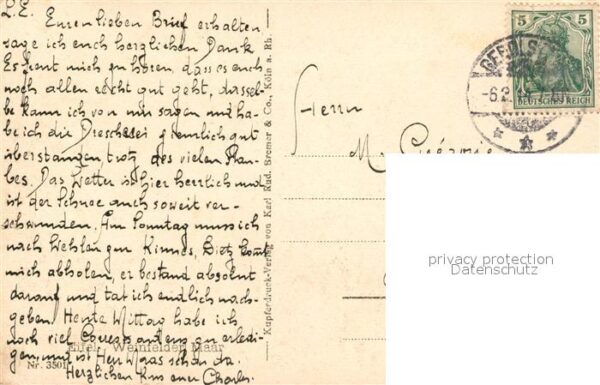 L. E. Euren lieben Brief erhalten
sage ich euch herzlichen Dank
Es freut mich zu hören, dass es euch
noch allen recht gut geht, dassel-
be kann ich von mir sagen und ha-
be ich die Drescherei ziemlich gut
überstanden trotz des vielen Stau-
bes. Das Wetter ist hier herrlich und
ist der Schnee auch soweit ver-
schwunden. Am Sonntag muss ich
nach zur Kirmes, Dietz kommt
mich abholen, er bestand absolut
darauf und tat ich endlich nach-
geben. Heute Mittag habe ich
noch viel zu erledi-
gen, und ist Herr Maas schon da.
Herzlichen Kuss euer Charles.
Eifel Weinfelden Maar
Nr. 3501
Kupferdruck-Verlag von Karl Rud. Bremer & Co., Köln a. Rh.
Herrn
M.
5 5
DEUTSCHES REICH
GEROLS
-6.2.
privacy protection
Datenschutz